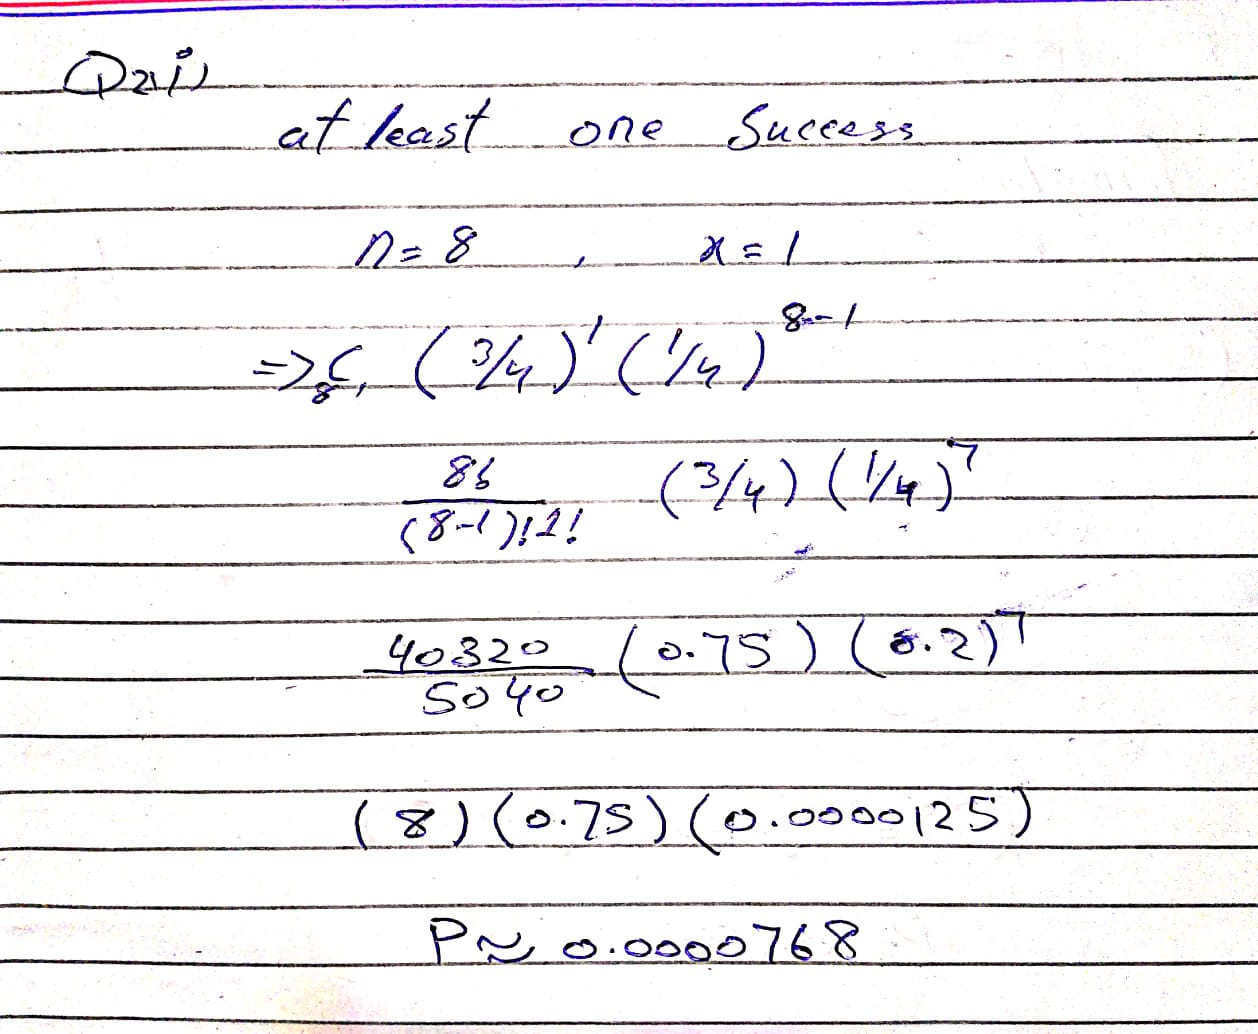 Q2i)
at least one Success
n = 8 , x = 1
=> ₈C₁ (3/4)¹ (1/4)⁸⁻¹
8! / (8-1)!1! (3/4) (1/4)⁷
40320 / 5040 (0.75) (0.2)⁷
(8) (0.75) (0.0000125)
P ≈ 0.0000768